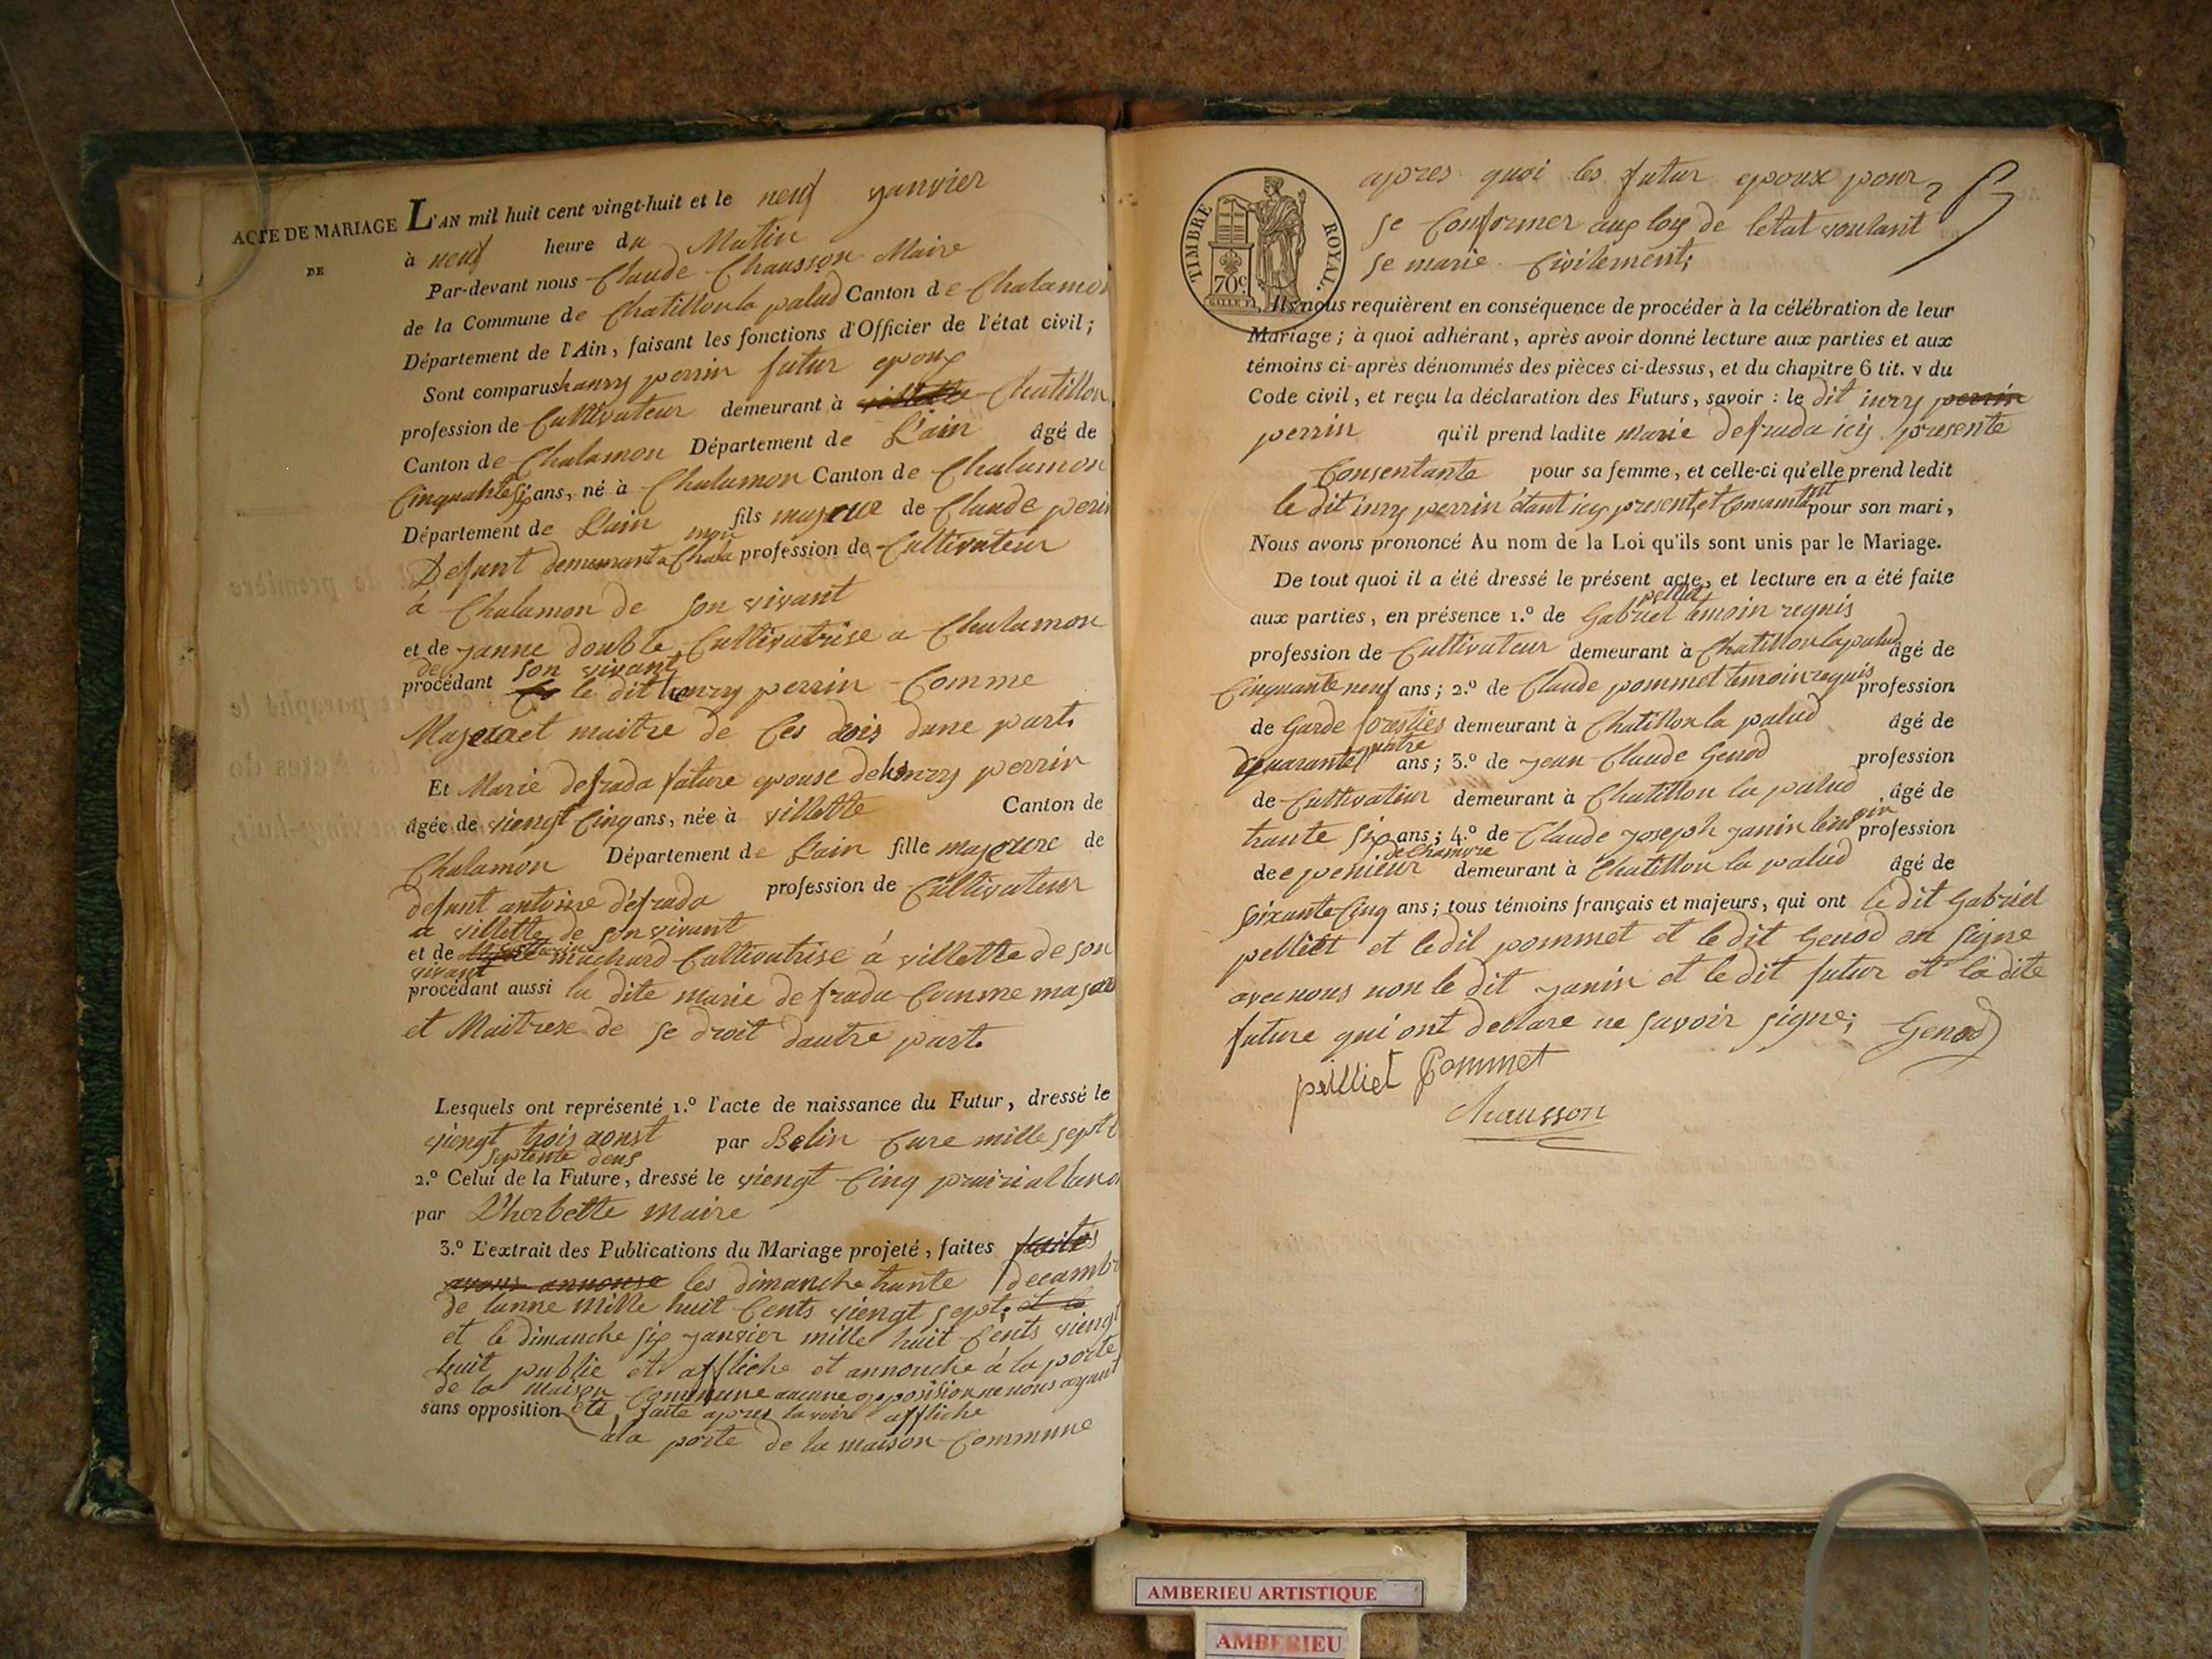 ACTE DE MARIAGE
DE
L'AN mil huit cent vingt-huit et le neuf janvier
à neuf heure du Matin
Par-devant nous Claude Chausson Maire
de la Commune de Chatillon la palud Canton de Chalamon
Département de l'Ain, faisant les fonctions d'Officier de l'état civil;
Sont comparus hanry perrin futur epoux
profession de Cultivateur demeurant à Chatillon
Canton de Chalamon Département de L'ain âgé de
Cinquante six ans, né à Chalamon Canton de Chalamon
Département de L'ain fils majeur de Claude perin
Defunt demeurant a Chala mon profession de Cultivateur
à Chalamon de son vivant
et de janne double Cultivatrise a Chalamon
de son vivant
procédant le dit henry perrin Comme
Majeur et maitre de Ces dois dune part.
Et Marie defrada future epouse de henry perrin
âgée de viengt Cinq ans, née à villette Canton de
Chalamon Département de L'ain fille majeure de
defunt antoine défrada profession de Cultivateur
a villette de son vivant
et de machard Cultivatrise à villette de son
vivant
procédant aussi la dite marie defrada Comme majeur
et Maitrese de se droit dautre part.
Lesquels ont représenté 1.º l'acte de naissance du Futur, dressé le
viengt trois aoust par Belin Cure mille sept C
septente deus
2.º Celui de la Future, dressé le viengt Cinq prairial
par L'herbette maire
3.º L'extrait des Publications du Mariage projeté, faites faites
avons annonse les dimanche trante decambr
de lanne mille huit Cents viengt sept. et le
et le dimanche six janvier mille huit Cents viengt
huit publie et affliche et annonche à la porte
de la maison Commune aucune opposision ne nous ayant
sans opposition été faite apres lavoir affliche
ala porte de la maison Commune
TIMBRE ROYAL.
70c.
apres quoi les futur epoux pour
se Conformer aux loy de letat voulant
se marie Civilement;
Ils nous requièrent en conséquence de procéder à la célébration de leur
Mariage; à quoi adhérant, après avoir donné lecture aux parties et aux
témoins ci-après dénommés des pièces ci-dessus, et du chapitre 6 tit. v du
Code civil, et reçu la déclaration des Futurs, savoir: le dit inry perrin
perrin qu'il prend ladite marie defrada icy presente
Consentante pour sa femme, et celle-ci qu'elle prend ledit
le dit inry perrin étant icy present et Consantant pour son mari,
Nous avons prononcé Au nom de la Loi qu'ils sont unis par le Mariage.
De tout quoi il a été dressé le présent acte, et lecture en a été faite
aux parties, en présence 1.º de Gabriel pelliet temoin requis
profession de Cultivateur demeurant à Chatillon la palud âgé de
Cinquante neuf ans; 2.º de Claude pommet temoin requis profession
de Garde foresties demeurant à Chatillon la palud âgé de
quarante quatre ans; 3.º de jean Claude Genod profession
de Cultivatiur demeurant à Chatillon la palud âgé de
trante six ans; 4.º de Claude joseph janin temoin profession
de epenieur de Chanvre demeurant à Chatillon la palud âgé de
soixante Cinq ans; tous témoins français et majeurs, qui ont le dit Gabriel
pelliet et le dit pommet et le dit Genod on signe
avec nous non le dit janin et le dit futur et la dite
future qui ont declare ne savoir signe;
Genod
pelliet Pommet
Chausson
AMBERIEU ARTISTIQUE
AMBERIEU